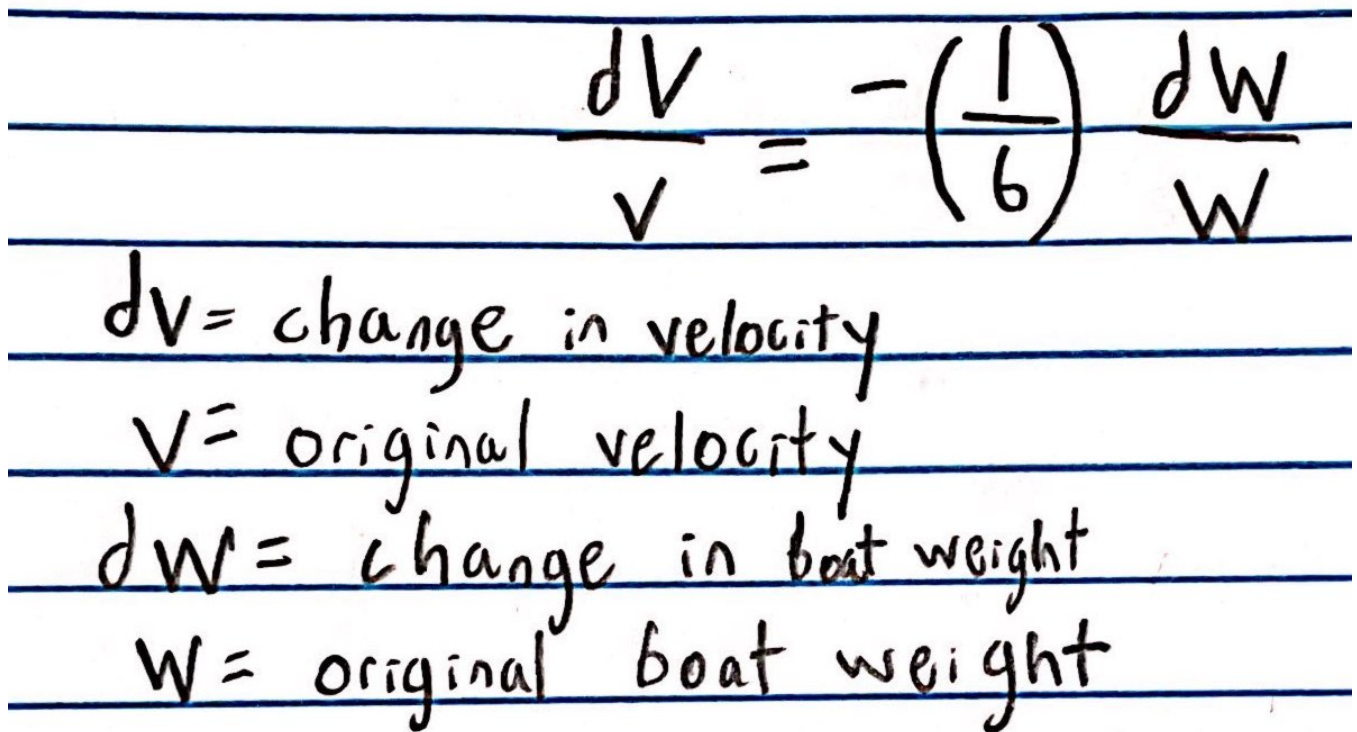 dV/V = -(1/6) dW/W
dv= change in velocity
V= original velocity
dW= change in boat weight
W= original boat weight